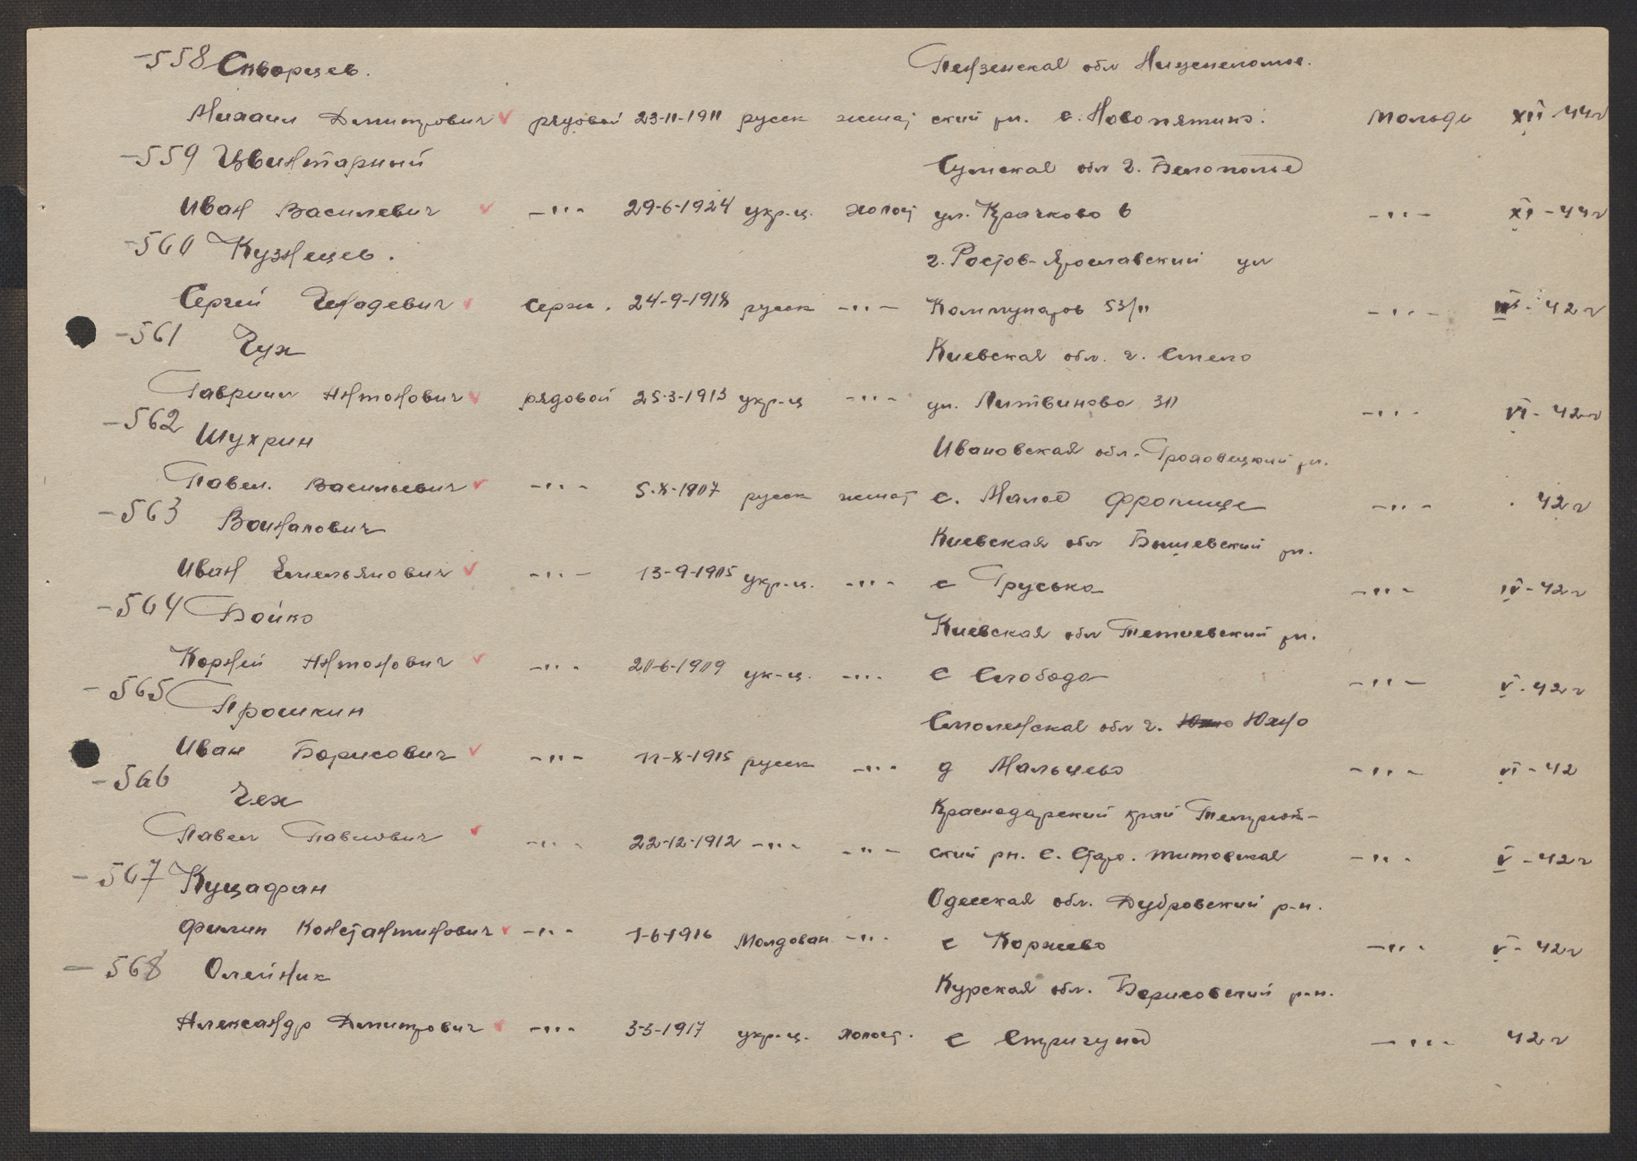 -558 Скворцев. Пензенская обл Нищепеломе.
Михаил Дмитрович рядовой 23-11-1911 русск женат ский рн. с. Новопятино. Мольде XII-44г
-559 Цвинтарный Сумская обл г. Белополье
Иван Василевич -"- 29-6-1924 укр-ц. холост ул. Крачково 6 -"- XI-44г
-560 Кузнецев. г. Ростов-Ярославский ул
Сергей серж. 24-9-1918 русск -"- Коммунаров 53/11 -"- 42г
-561 Чух Киевская обл. г. Смело
Гавриил Антонович рядовой 25-3-1913 укр-ц -"- ул. Литвинова 30 -"- VI-42г
-562 Шухрин Ивановская обл.
Павел. Васильевич -"- 5-X-1907 русск женат с. Малое -"- 42г
-563 Войналович Киевская обл Бышевский рн.
Иван Емельянович -"- 13-9-1905 укр-ц. -"- с Груська -"- IV-42г
-564 Бойко Киевская обл Тетиевский рн.
Корней Антонович -"- 20-6-1909 ук-ц. -"- с Слобода -"- V-42г
-565 Прошкин Смоленская обл г. Юхно
Иван Борисович -"- 11-X-1915 русск -"- д Мальцево -"- VI-42
-566 Чех Краснодарский край Темрюк-
Павел Павлович -"- 22-12-1912 -"- -"- ский рн. с. Старо. титовская -"- V-42г
-567 Куцафан Одесская обл. Дубровский р-н.
Филип Константинович -"- 1-6-1916 Молдован -"- с Коржево -"- V-42г
-568 Олейник Курская обл. Борисовский р-н.
Александр Дмитрович -"- 3-3-1917 укр-ц. холост. с Стригуно -"- 42г